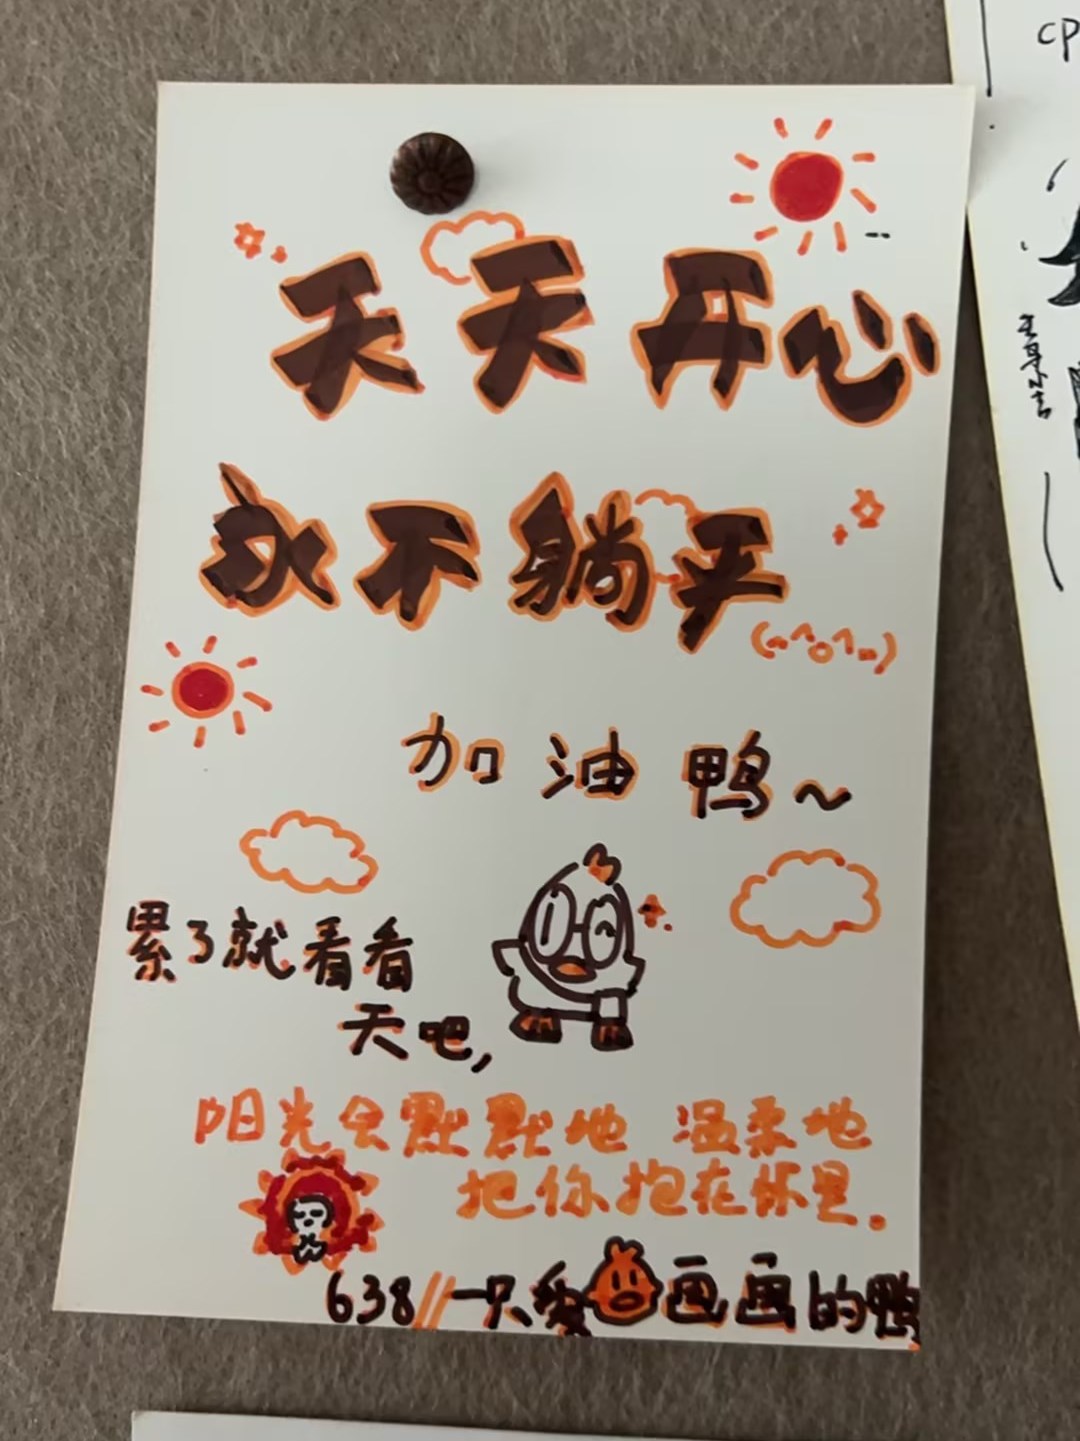 天天开心
永不躺平
(„^o^„)
加油鸭~
累了就看看
天吧,
阳光会默默地 温柔地
把你抱在怀里.
638//一只爱画画的鸭
cp